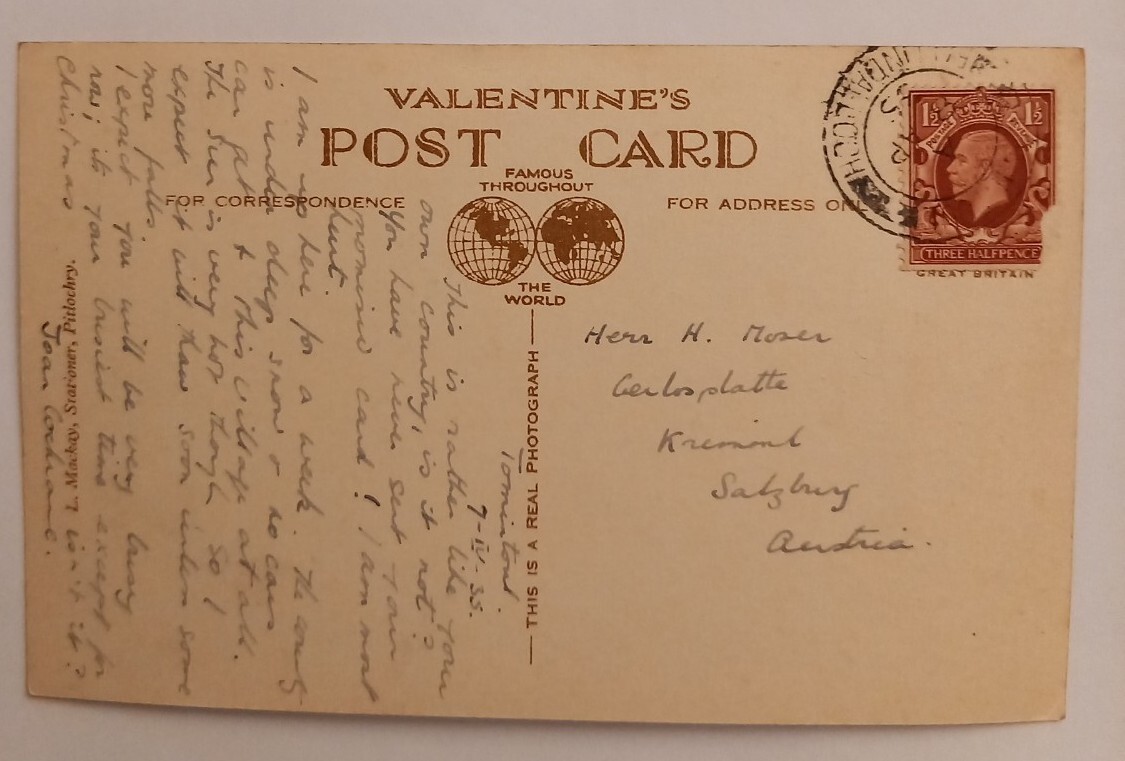 VALENTINE'S
POST CARD
FAMOUS
THROUGHOUT
THE
WORLD
FOR CORRESPONDENCE
FOR ADDRESS ONLY
1½ 1½
POSTAGE REVENUE
THREE HALFPENCE
GREAT BRITAIN
BALLINDALLOCH
THIS IS A REAL PHOTOGRAPH
L. Mackay, Stationer, Pitlochry.
Tomintoul.
7-IV-35.
This is rather like your
own country, is it not?
You have never sent your
promised card! I am most
hurt.
I am up here for a week. The county
is under deep snow & no cars
can get to this village at all.
The sun is very hot though so I
expect it will thaw soon unless some
more falls.
I expect you will be very busy
now; its your busiest time except for
Christmas isn't it?
Joan Cochrane.
Herr H. Moser
Gerlosplatte
Krimml
Salzburg
Austria.